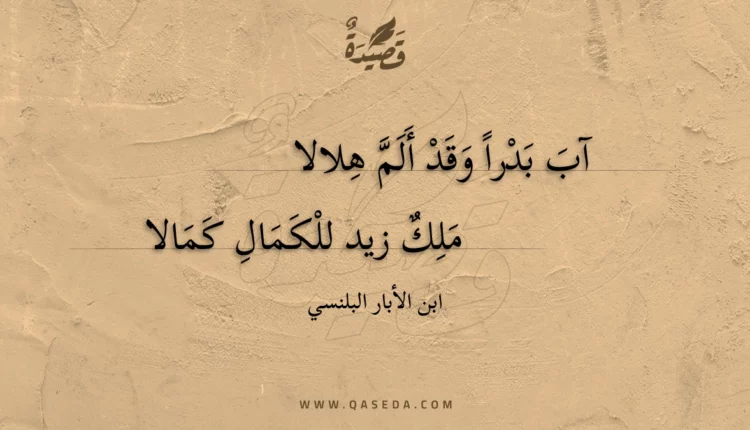 قَصِيدَةٌ
آبَ بَدْراً وَقَدْ أَلَمَّ هِلالا
مَلِكٌ زيد للْكَمَالِ كَمَالا
ابن الأبار البلنسي
WWW.QASEDA.COM